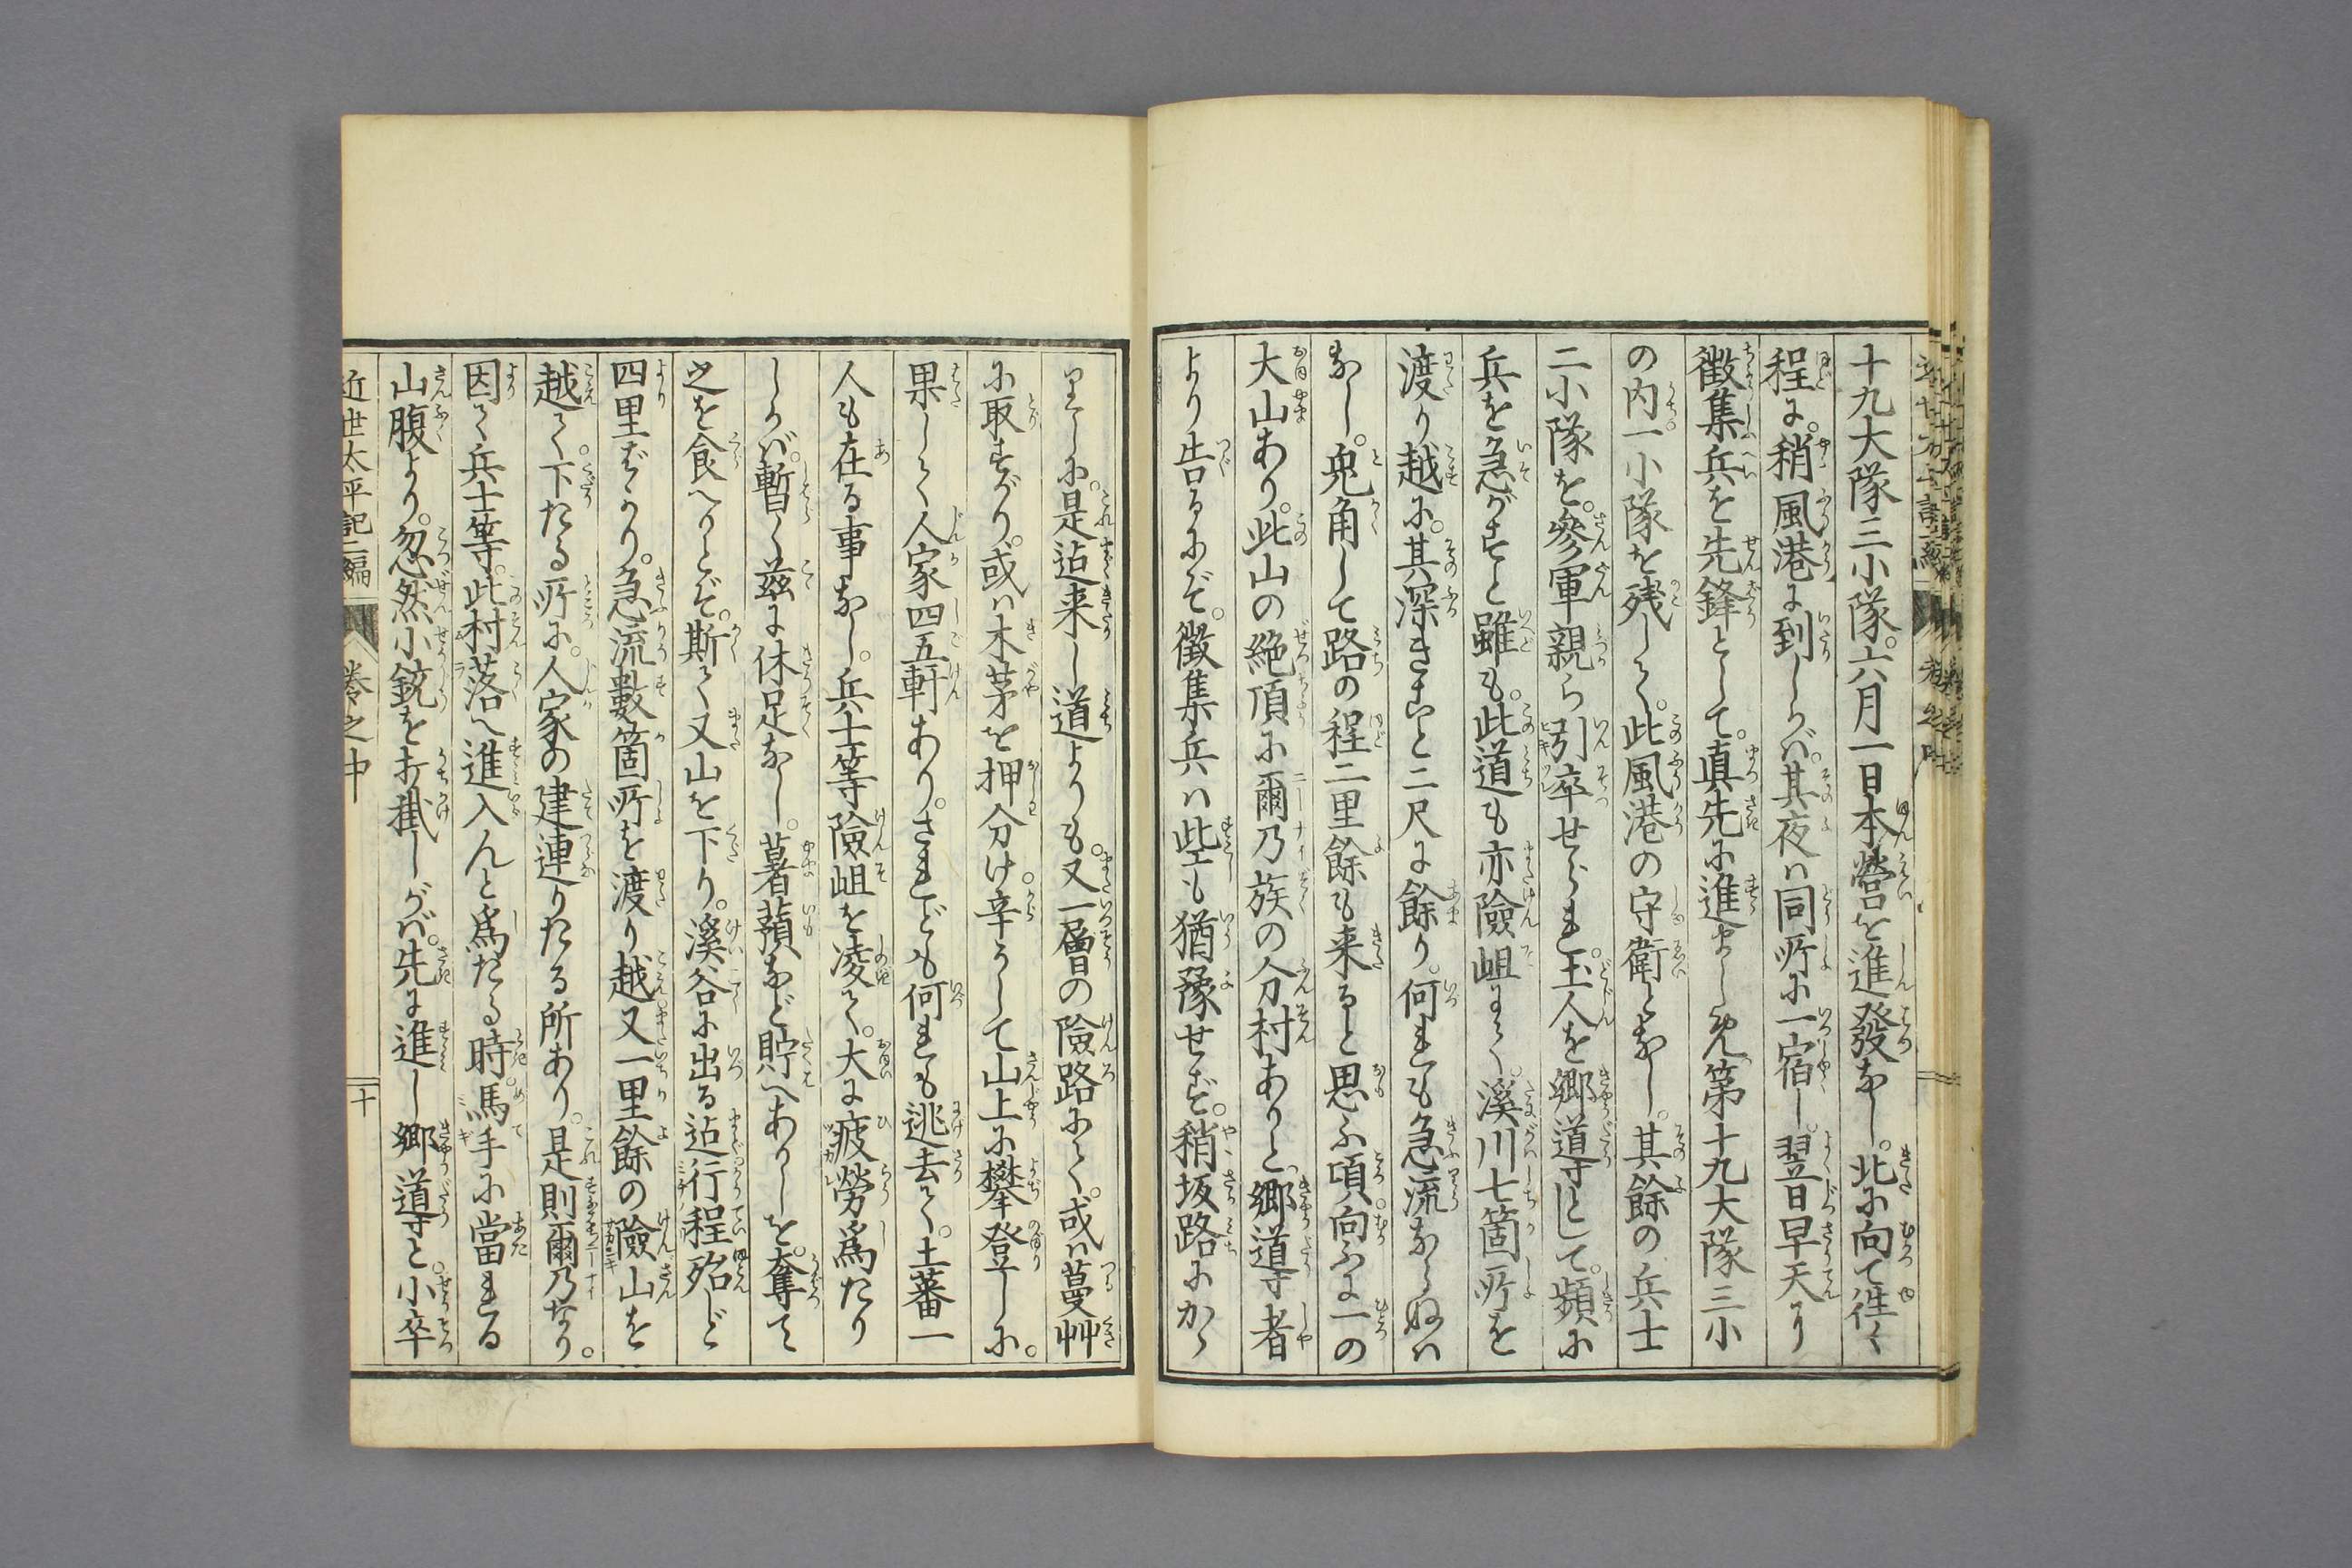 十九大隊三小隊。六月一日本營を進發なし。北に向て徃く
程に。稍風港に到しかバ。其夜ハ同所に一宿し。翌日早天より
徴集兵を先鋒として。真先に進ましめ第十九大隊三小
の内一小隊を残して。此風港の守衛となし。其餘の兵士
二小隊を。參軍親ら引卒せられ。土人を郷導として。頻に
兵を急がすと雖も。此道も亦險岨にて。溪川七箇所を
渡り越に。其深きこと二尺に餘り。何れも急流ならぬハ
なし。兎角して路の程二里餘も来ると思ふ頃。向ふに一の
大山あり。此山の絶頂に爾乃蔟の分村ありと。郷導者
より告るにぞ。徴集兵ハ些も猶豫せず。稍坂路にかゝ
りしに。是迠来し道よりも。又一層の險路にて。或ハ蔓艸
に取すがり。或ハ木茅を押分け。辛うして山上に攀登しに。
果して人家四五軒あり。されども何れも逃去て。土蕃一
人も在る事なし。兵士等險岨を凌て。大に疲勞爲たり
しかバ。暫く茲に休足なし。暑蕷など貯へありしを。奪て
之を食へりとぞ。斯て又山を下り。溪谷に出る迠行程殆ど
四里ばかり。急流數箇所を渡り越又一里餘の險山を
越て。下たる所に。人家の建連りたる所あり。是則爾乃なり。
因て兵士等。此村落へ進入んと爲たる時。馬手に當れる
山腹より。忽然小銃を打掛しがバ。先に進し郷導と。小卒
近世太平記二編
巻之中
十